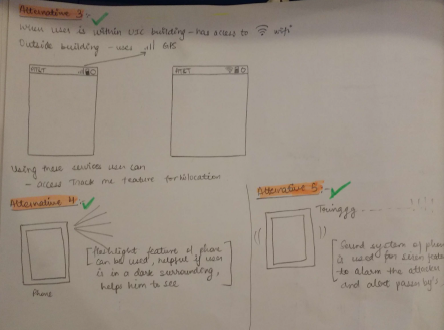 Alternative 3:-
When user is within UIC building - has access to wifi
Outside building - uses GPS
AT&T
AT&T
Using these services user can
- access Track me feature for bilocation
Alternative 4:-
[Flashlight feature of phone
can be used, helpful if user
is in a dark surrounding,
helps him to see
Phone
Alternative 5:-
Tringgg - - - -
[Sound system of phone
is used for siren feature
to alarm the attacker
and alert passerby's,